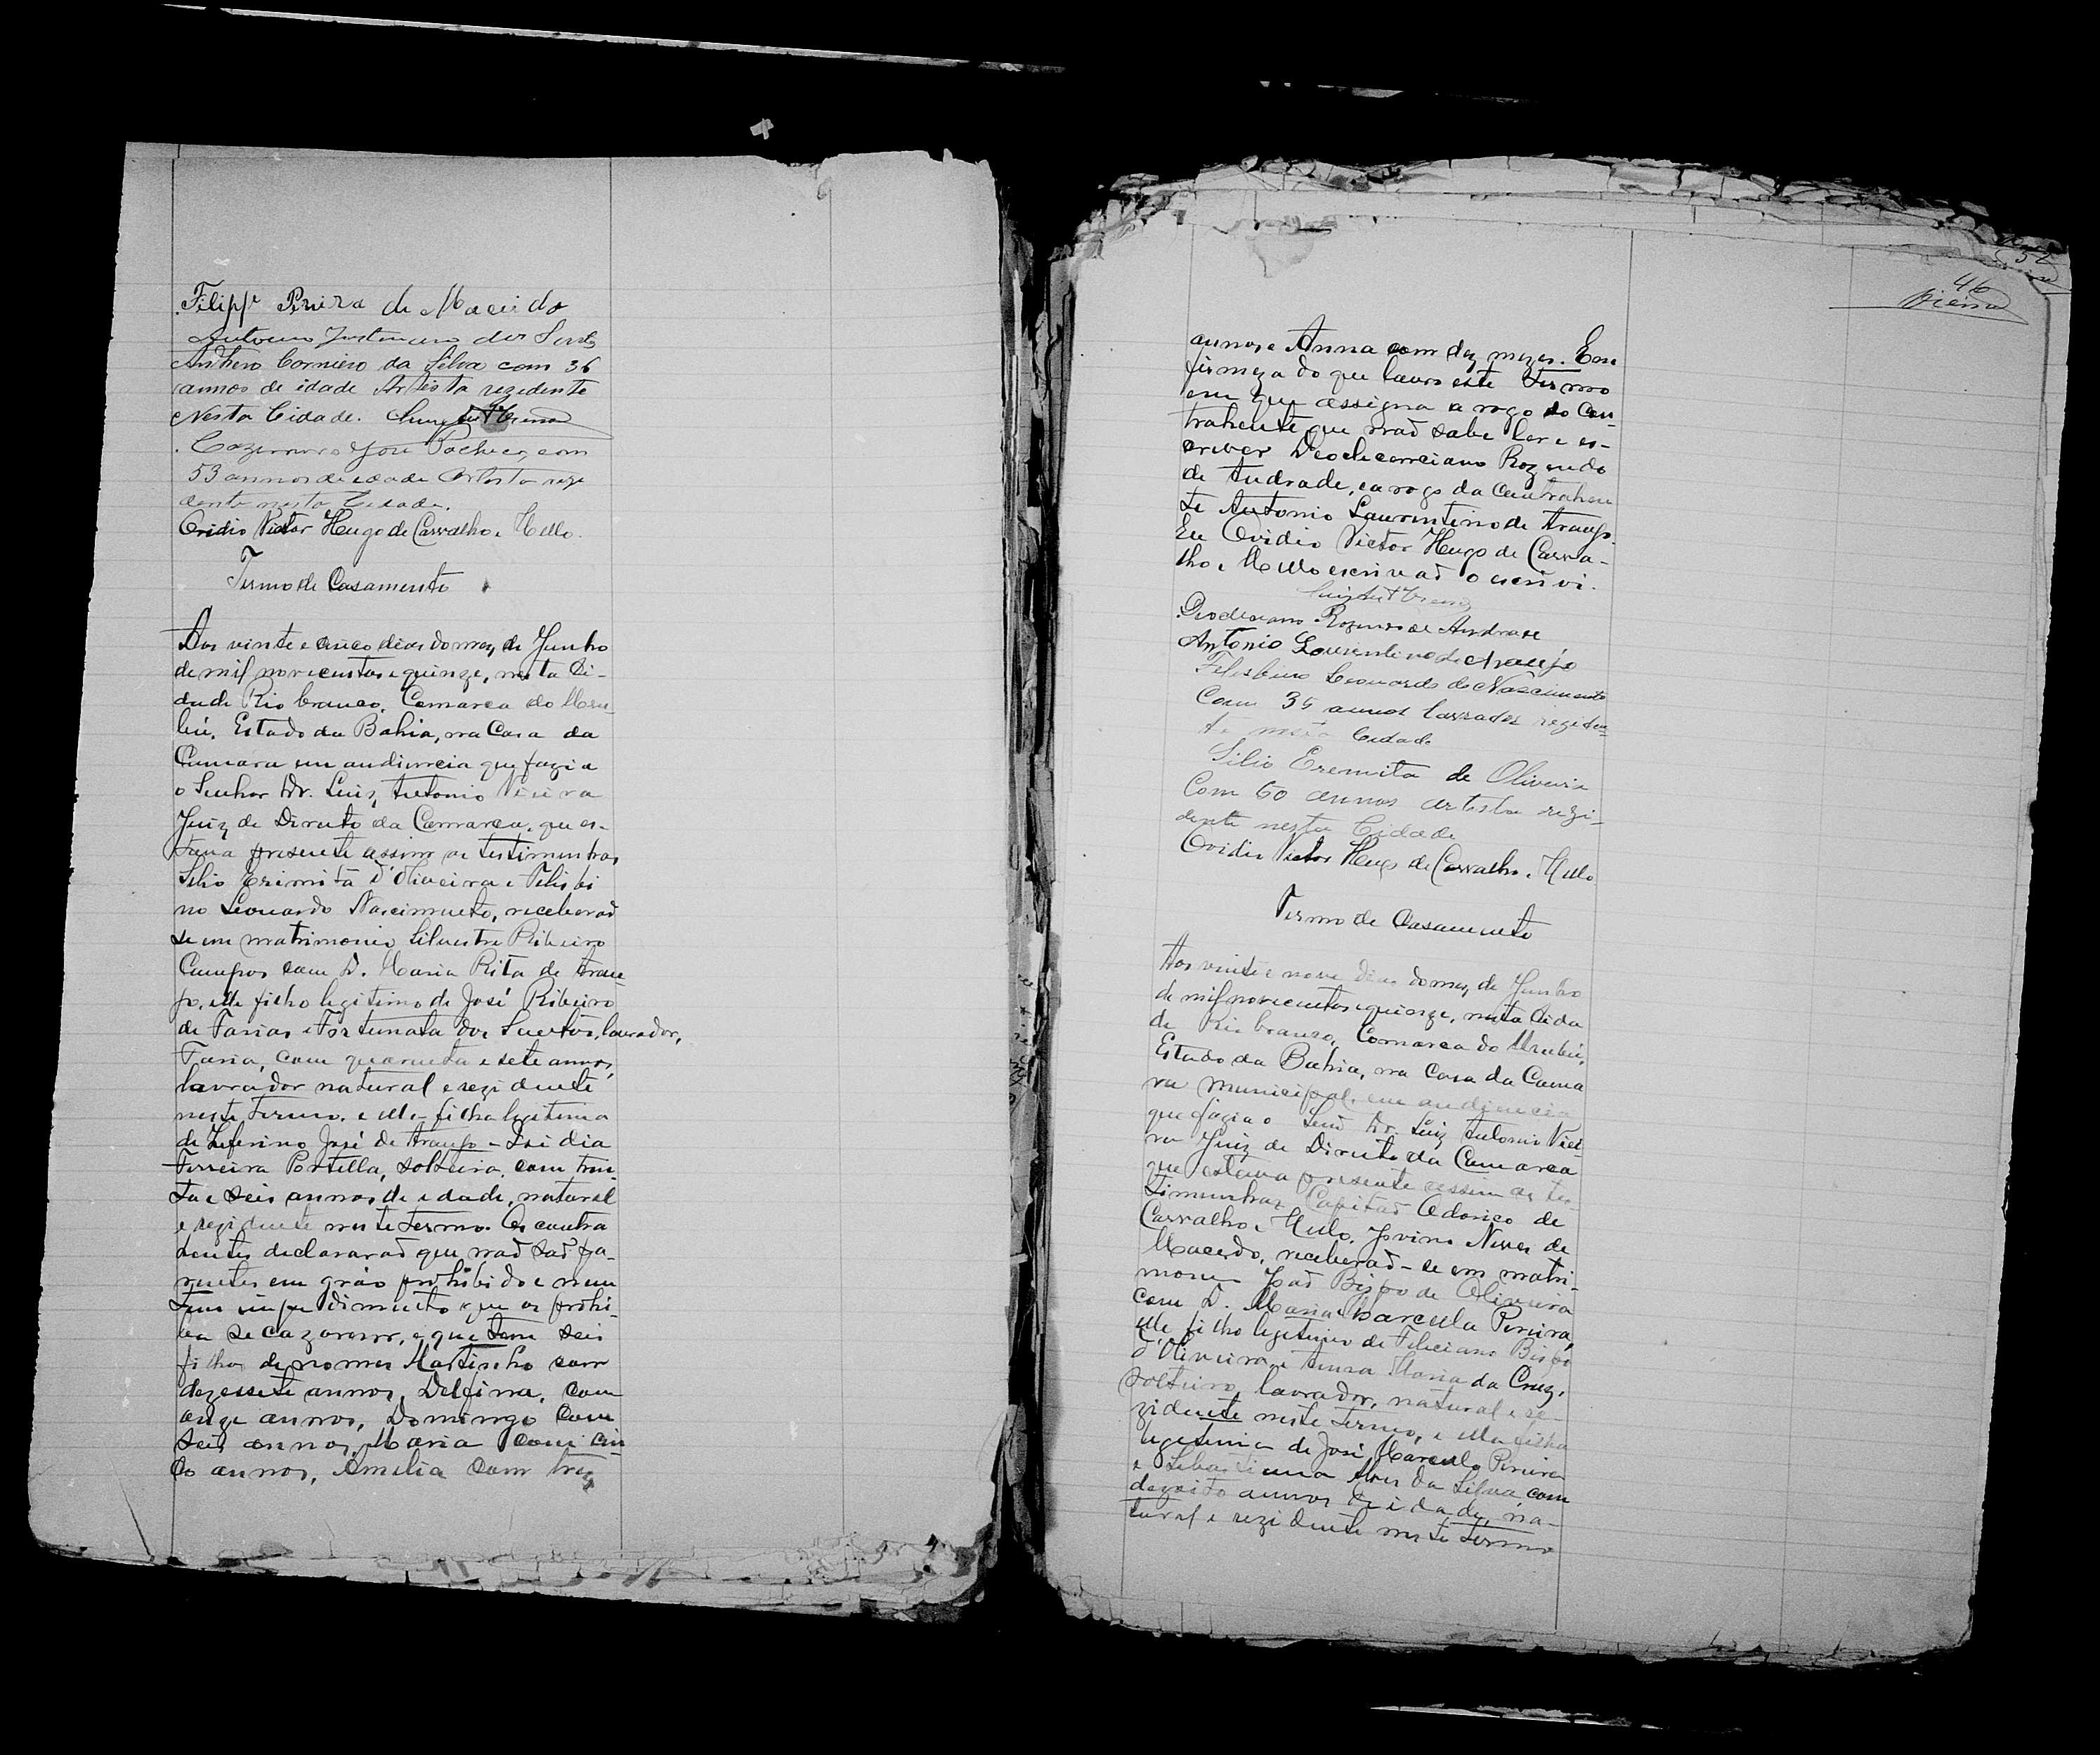 Filippe Pereira de Macêdo
Antonio Justiniano dos Santos
Anthero Corneiro da Silva com 36
annos de idade Artista rezidente
Nesta Cidade.
Cazemiro José Pacheco, com
53 annos de edade Artista rezi
dente nesta Cidade.
Ovidio Victor Hugo de Carvalho e Mello.
Termo de Casamento
Aos vinte e cinco dias do mez de Junho
de mil novecentos e quinze, nesta Ci-
dade Rio branco, Comarca do Uru-
bú, Estado da Bahia, na Casa da
Camara em audiencia que fazia
o Senhor Dr. Luiz Antonio Vieira
Juiz de Direito da Comarca, que es-
tava presente assim as testimunhas
Silio Erimita d'Oliveira e Felisbi
no Leonardo Nascimento, receberaõ
se em matrimonio Silvestre Ribeiro
Campos com D. Maria Rita de Arau-
jo, elle filho legitimo de José Ribeiro
de Farias e Fortunata dos Santos, lavrador,
Faria, com quarenta e sete annos,
lavrador natural e rezidente
neste termo, e ella filha legitima
de Zeferino José de Araujo e
Ferreira Portella, solteira, com trin-
ta e seis annos de edade, natural
e rezidente neste termo. Os contra
hentes declararaõ que naõ saõ pa-
rentes em gráo prohibido e nem
tem impedimento que os prohi-
ba se cazarem, e que tem seis
filhos de nomes Martinho com
dezessete annos, Delfina, com
onze annos, Domingo com
seis annos, Maria com cin
co annos, Amelia com tres
46
Vieira
annos e Anna com dez mezes. Em
firmeza do que lavro este termo
em que assigna a rogo do con-
trahente que naõ sabe ler e es-
crever Deocleciano Rozendo
de Andrade, e a rogo da contrahen
te Antonio Laurentino de Araujo.
Eu Ovidio Victor Hugo de Carva-
lho e Mello escrivaõ o escrevi.
Deocleciano Rozendo de Andrade
Antonio Lourentino de Araujo
Felisbino Leonardo do Nascimento
Com 35 annos lavrador reziden-
te nesta Cidade
Silio Eremita de Oliveira
Com 60 annos artista rezi-
dente nesta Cidade
Ovidio Victor Hugo de Carvalho e Mello
Termo de Casamento
Aos vinte e nove dias do mez de Junho
de mil novecentos e quinze, nesta Cida
de Rio branco, Comarca do Urubú,
Estado da Bahia, na Casa da Cama
ra municipal, em audiencia
que fazia o Senr Dr. Luiz Antonio Viei-
ra Juiz de Direito da Comarca
que estava presente assim as tes-
timunhas Capitaõ Odorico de
Carvalho e Mello, Jovino Neves de
Macedo, receberaõ-se em matri-
monio Joaõ Bispo de Oliveira
com D. Maria Marcella Pereira,
elle filho legitimo de Feliciano Bispo
d'Oliveira e Anna Maria da Cruz,
solteiro, lavrador, natural e re-
zidente neste termo, e ella filha
legitima de José Marcello Pereira
e Sebastiana Alves da Silva, com
dezoito annos de idade, na-
tural e rezidente neste termo